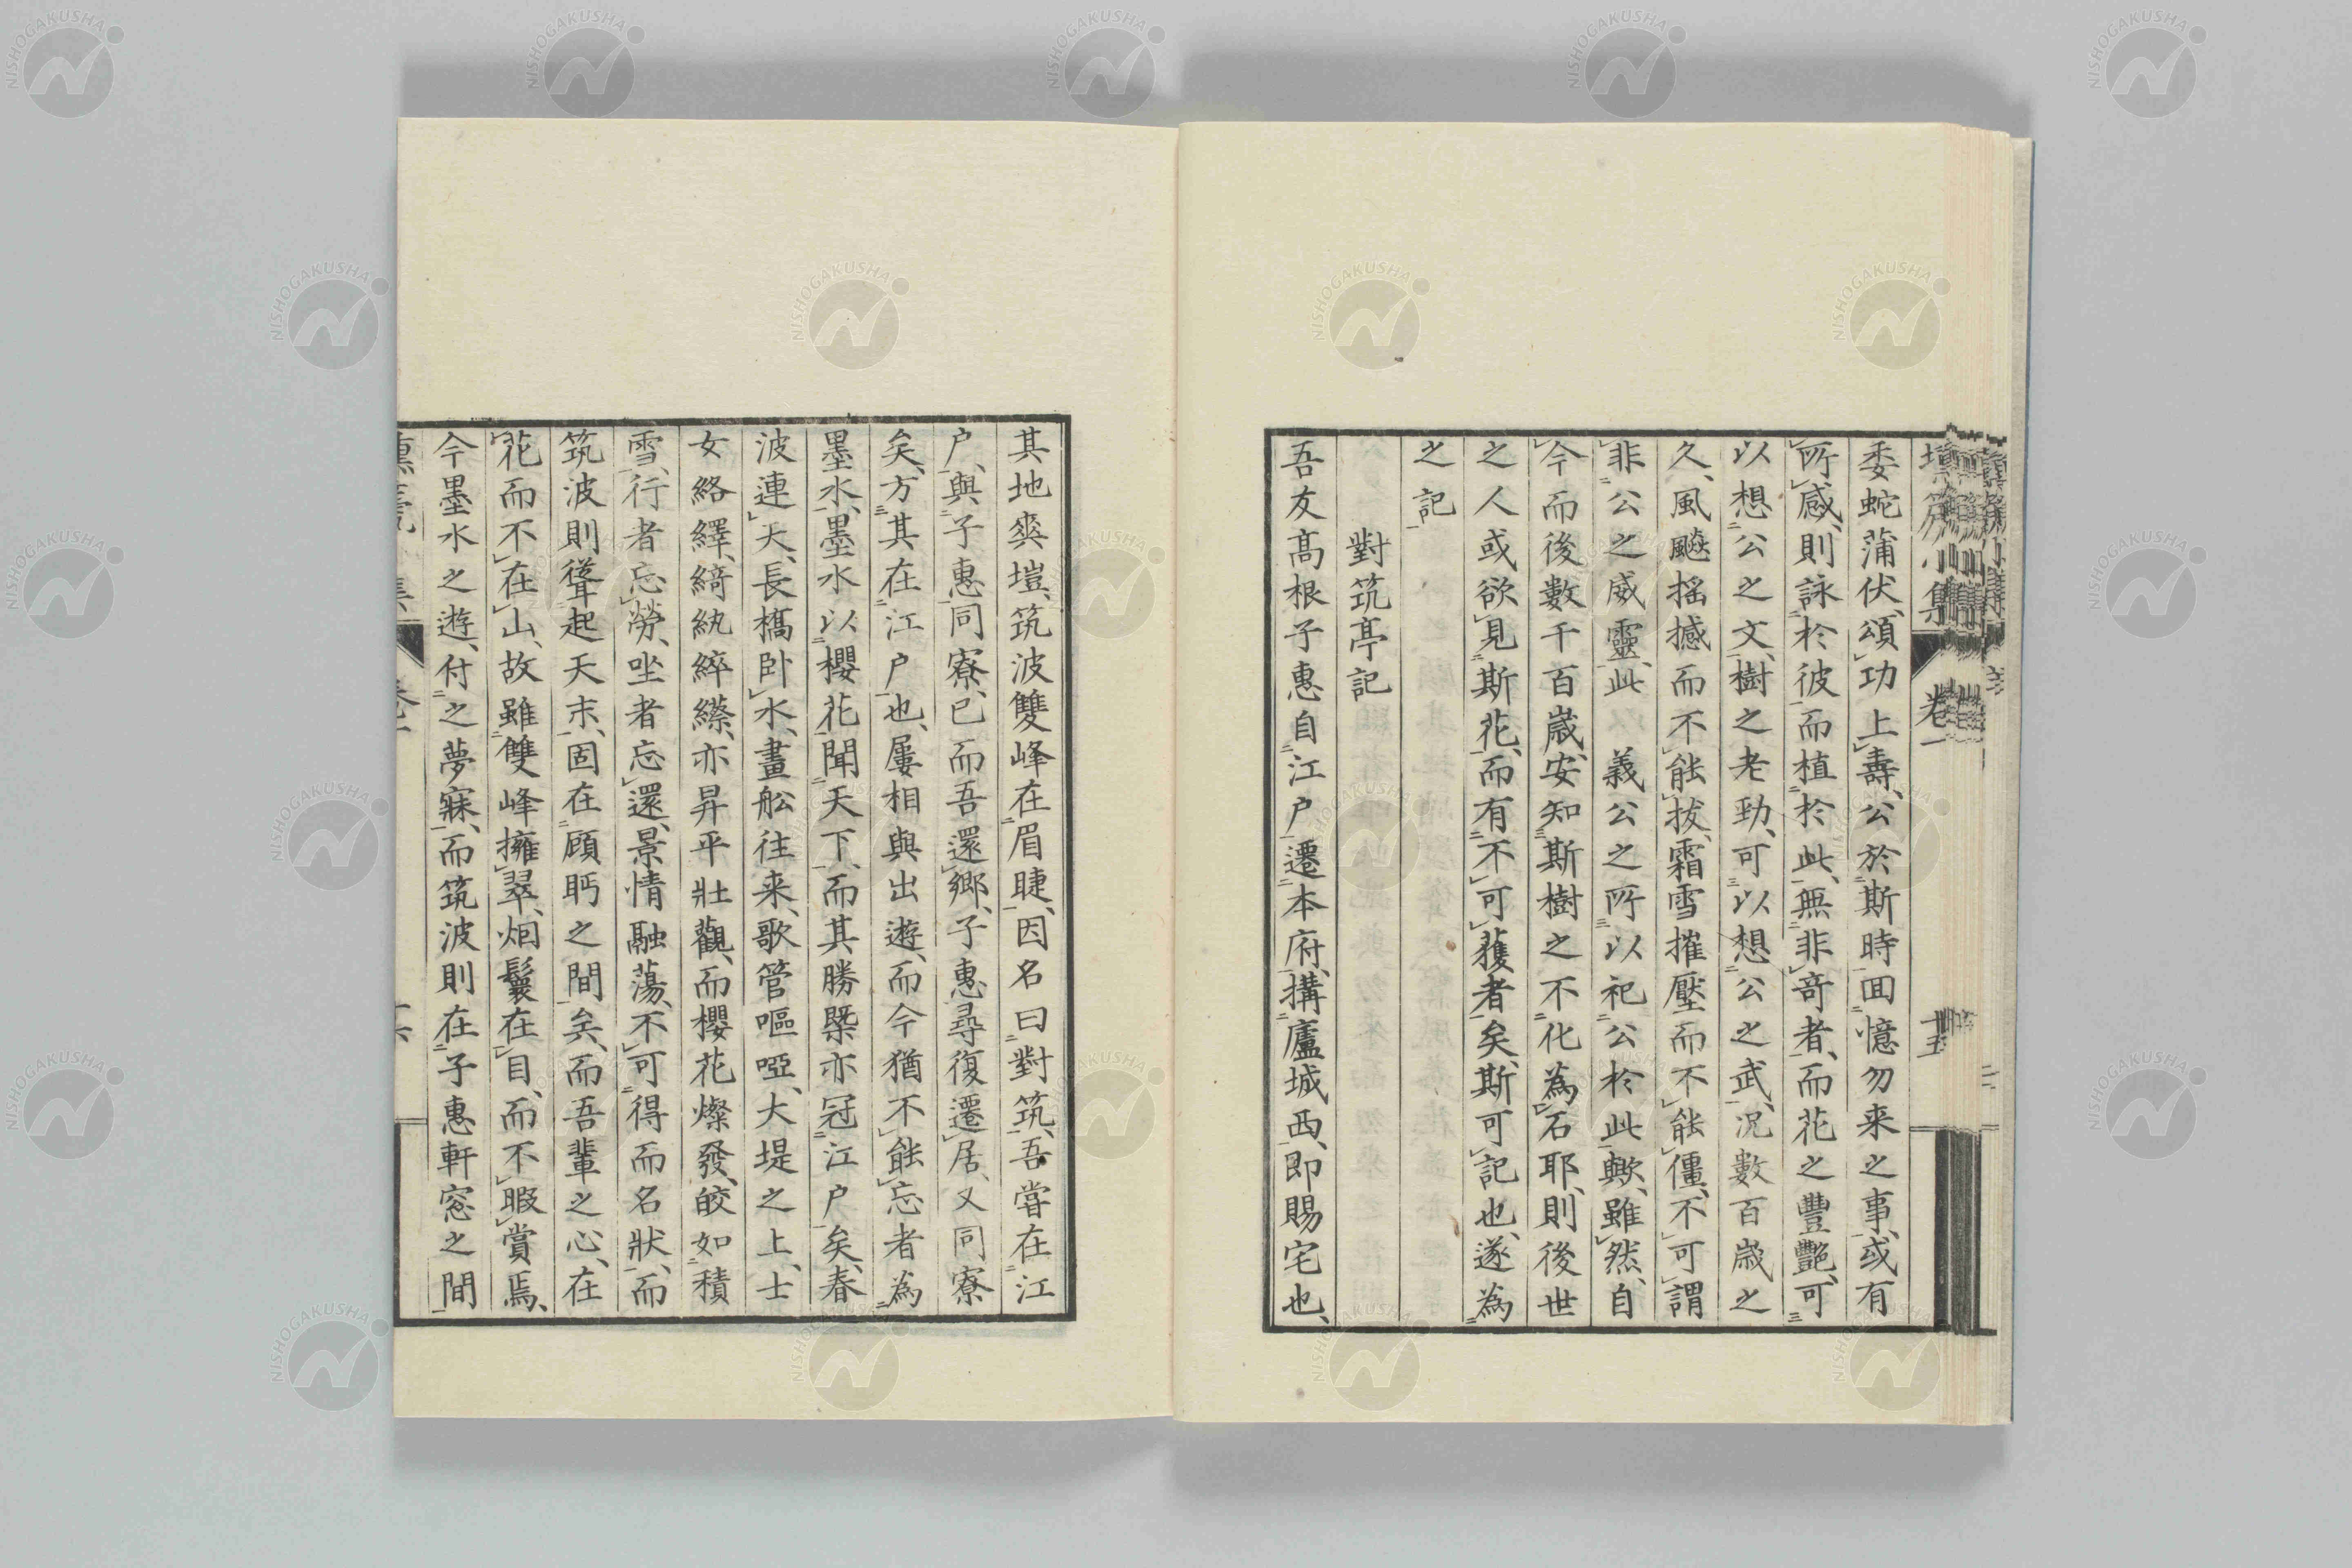 委蛇蒲伏、頌功上壽、公於斯時囬憶勿来之事、或有
所感、則詠於彼而植於此、無非竒者、而花之豐艷、可
以想公之文、樹之老勁、可以想公之武、况數百歳之
久、風颷揺撼而不能拔、霜雪摧壓而不能僵、不可謂
非公之威靈、此　義公之所以祀公於此歟、雖然、自
今而後數千百歳、安知斯樹之不化為石耶、則後世
之人或欲見斯花、而有不可獲者矣、斯可記也、遂為
之記
對筑亭記
吾友髙根子惠自江户遷本府、搆廬城西、即賜宅也、
其地爽塏、筑波雙峰在眉睫、因名曰對筑、吾嘗在江
户、與子惠同寮、已而吾還郷、子惠尋復遷居、又同寮
矣、方其在江户也、屢相與出遊、而今猶不能忘者為
墨水、墨水以櫻花聞天下、而其勝槩亦冠江户矣、春
波連天、長橋卧水、畫舩往来、歌管嘔啞、大堤之上、士
女絡繹、綺紈綷縩、亦昇平壯觀、而櫻花燦發、皎如積
雪、行者忘勞、坐者忘還、景情融蕩、不可得而名狀、而
筑波則聳起天末、固在顧眄之間矣、而吾輩之心、在
花而不在山、故雖雙峰擁翠、烟鬟在目、而不暇賞焉、
今墨水之遊、付之夢寐、而筑波則在子惠軒窓之間
小集
卷一
十五
NISHOGAKUSHA